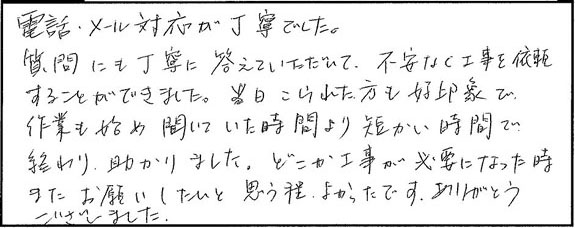 電話・メール対応が丁寧でした。
質問にも丁寧に答えていただいて、不安なく工事を依頼
することができました。当日こられた方も好印象で、
作業も始め聞いていた時間より短かい時間で
終わり、助かりました。どこか工事が必要になった時
またお願いしたいと思う程、よかったです。ありがとう
ございました。